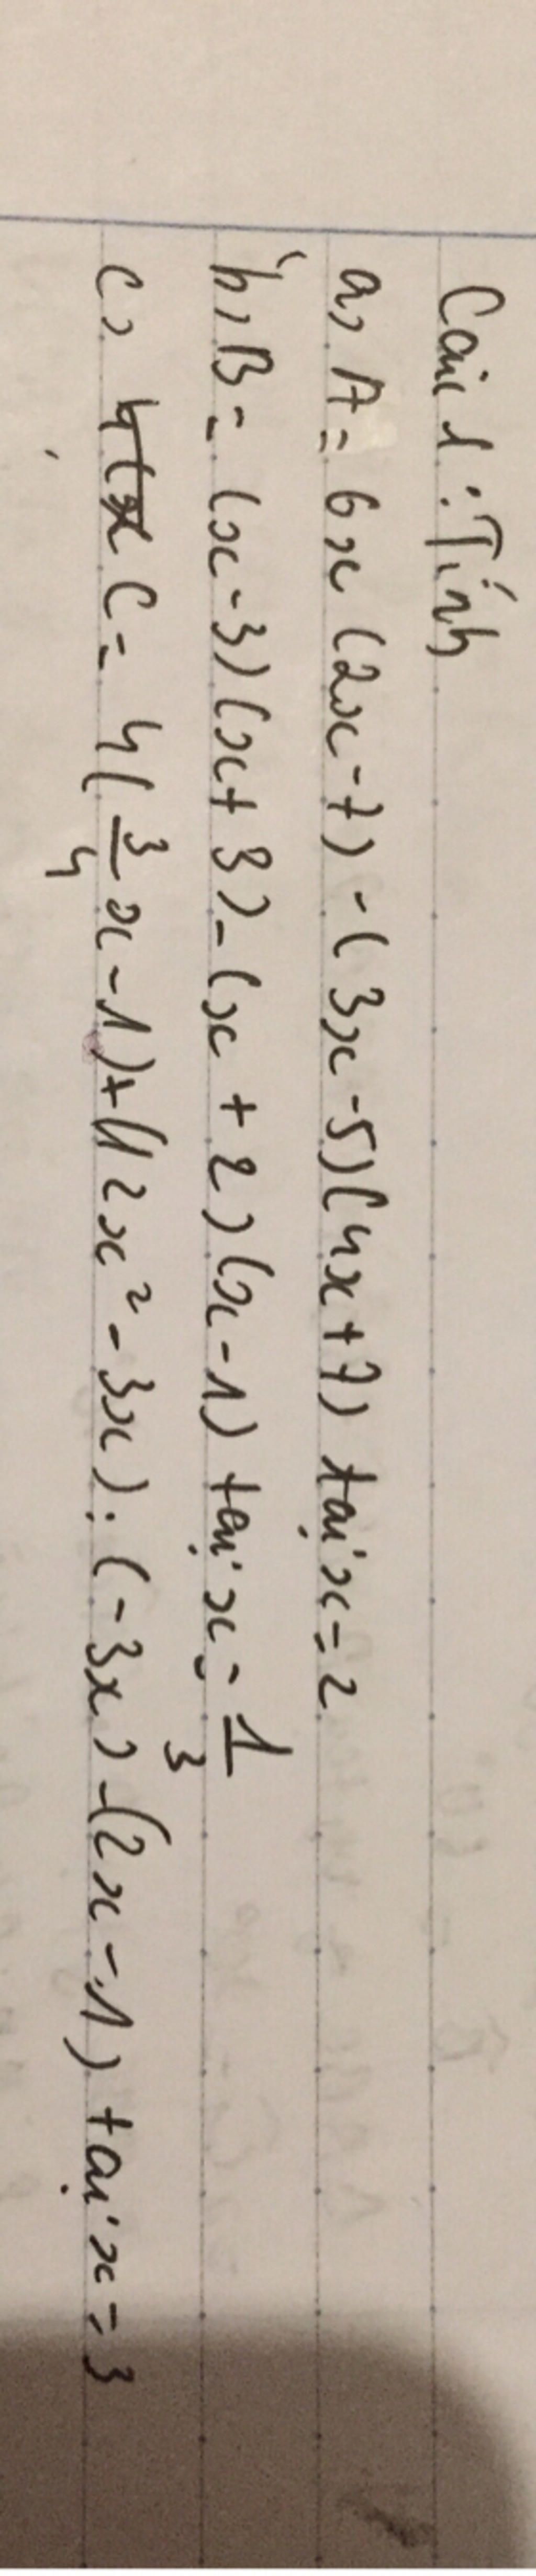 Câu 1: Tính
a, A = 6x(2x-7) - (3x-5)(4x+7) tại x = 2
b, B = (x-3)(x+3) - (x+2)(x-1) tại x = \frac{1}{3}
c, C = 4(\frac{3}{4}x-1) + (12x² - 3x) : (-3x) - (2x-1) tại x = 3